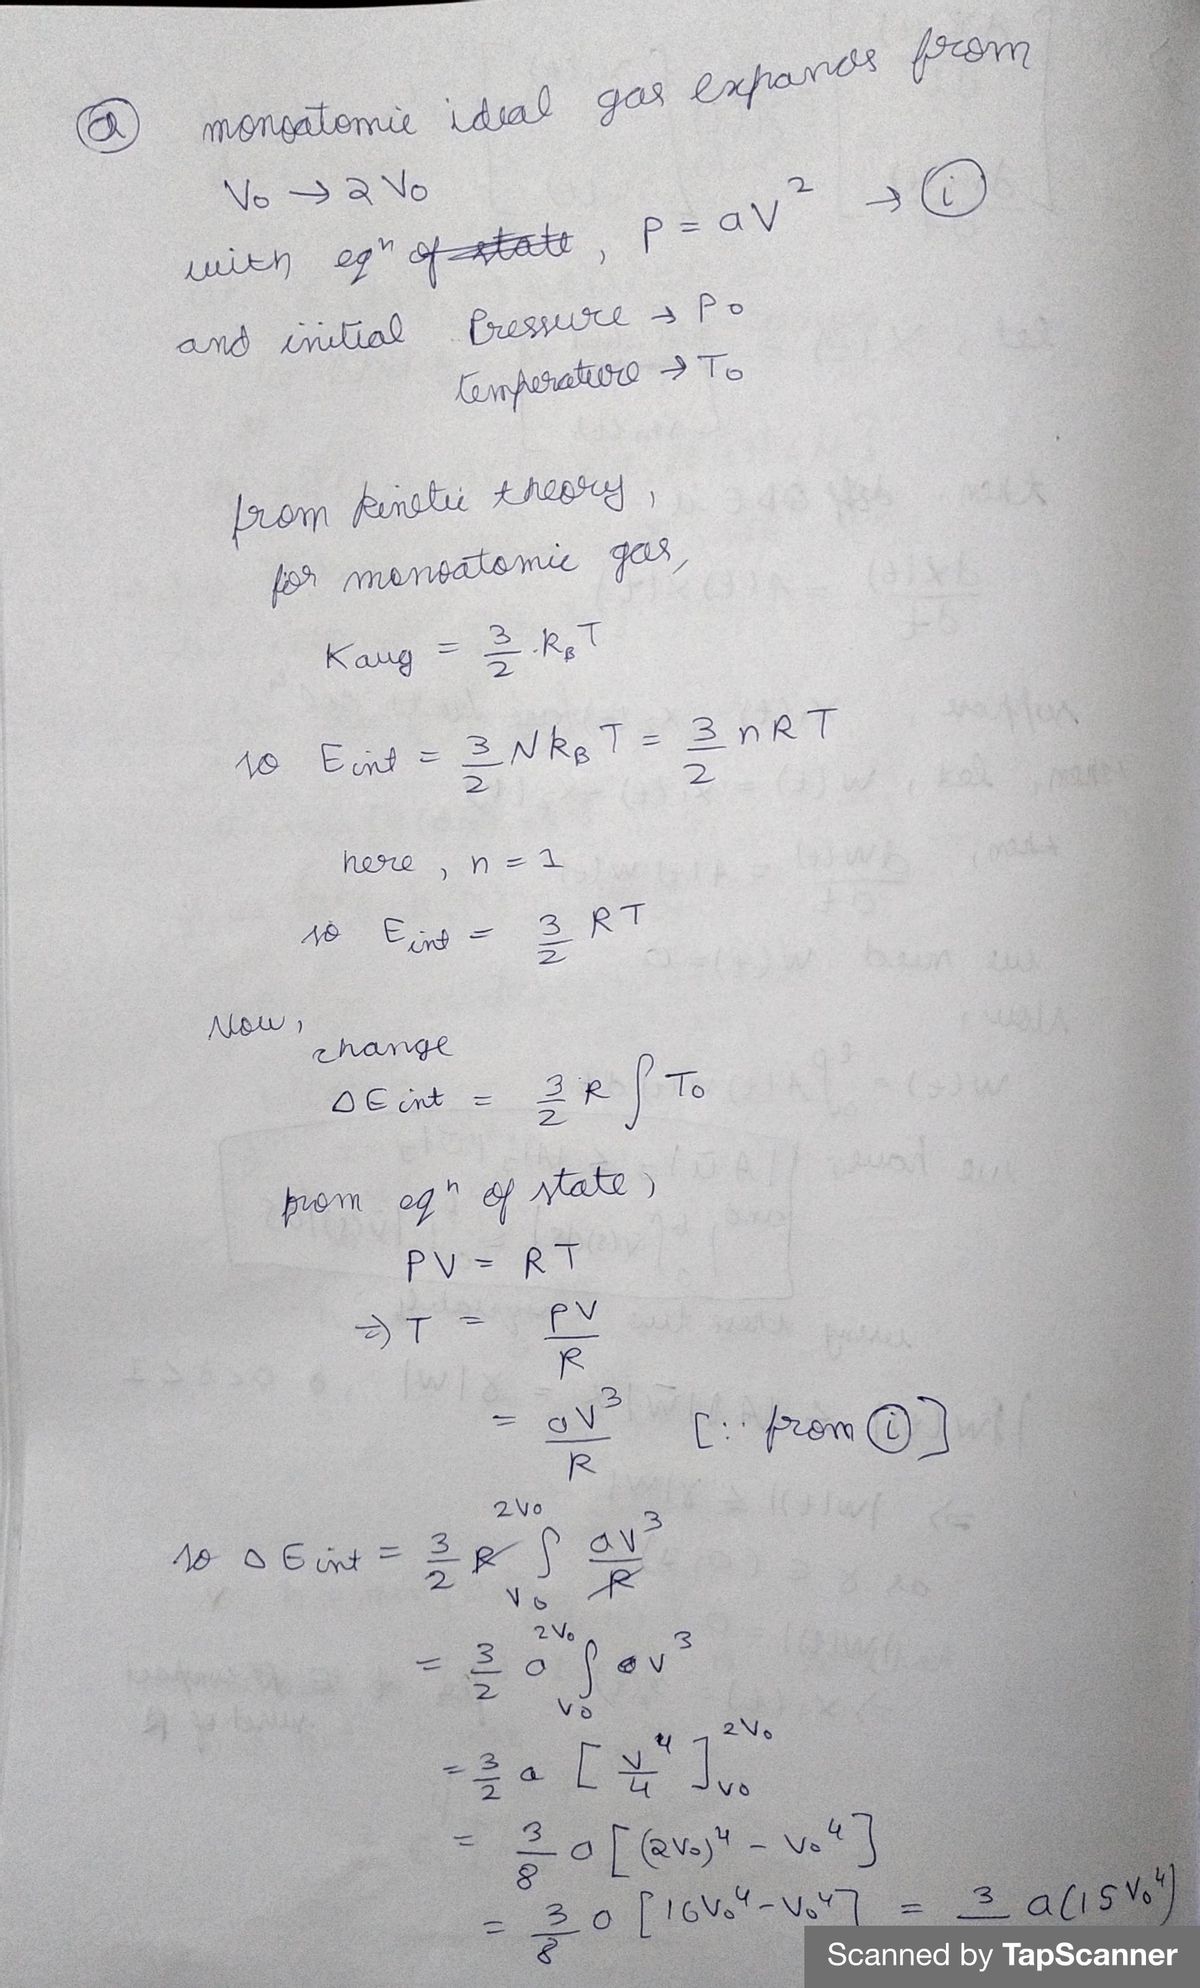 (a) monoatomic ideal gas expands from
V₀ → 2V₀
with eqⁿ of state, P = aV² → (i)
and initial Pressure → P₀
temperature → T₀
from kinetic theory,
for monoatomic gas,
Kavg = 3/2 · k_B T
so E int = 3/2 N k_B T = 3/2 n R T
here, n = 1
so E int = 3/2 R T
Now,
change
ΔE int = 3/2 R ∫ T₀
from eqⁿ of state,
PV = RT
⇒ T = PV/R
= aV³/R [∵ from (i)]
so ΔE int = 3/2 R ∫_{V₀}^{2V₀} aV³/R
= 3/2 a ∫_{V₀}^{2V₀} V³
= 3/2 a [V⁴/4]_{V₀}^{2V₀}
= 3/8 a [(2V₀)⁴ - V₀⁴]
= 3/8 a [16V₀⁴ - V₀⁴] = 3 a(15V₀⁴)
Scanned by TapScanner